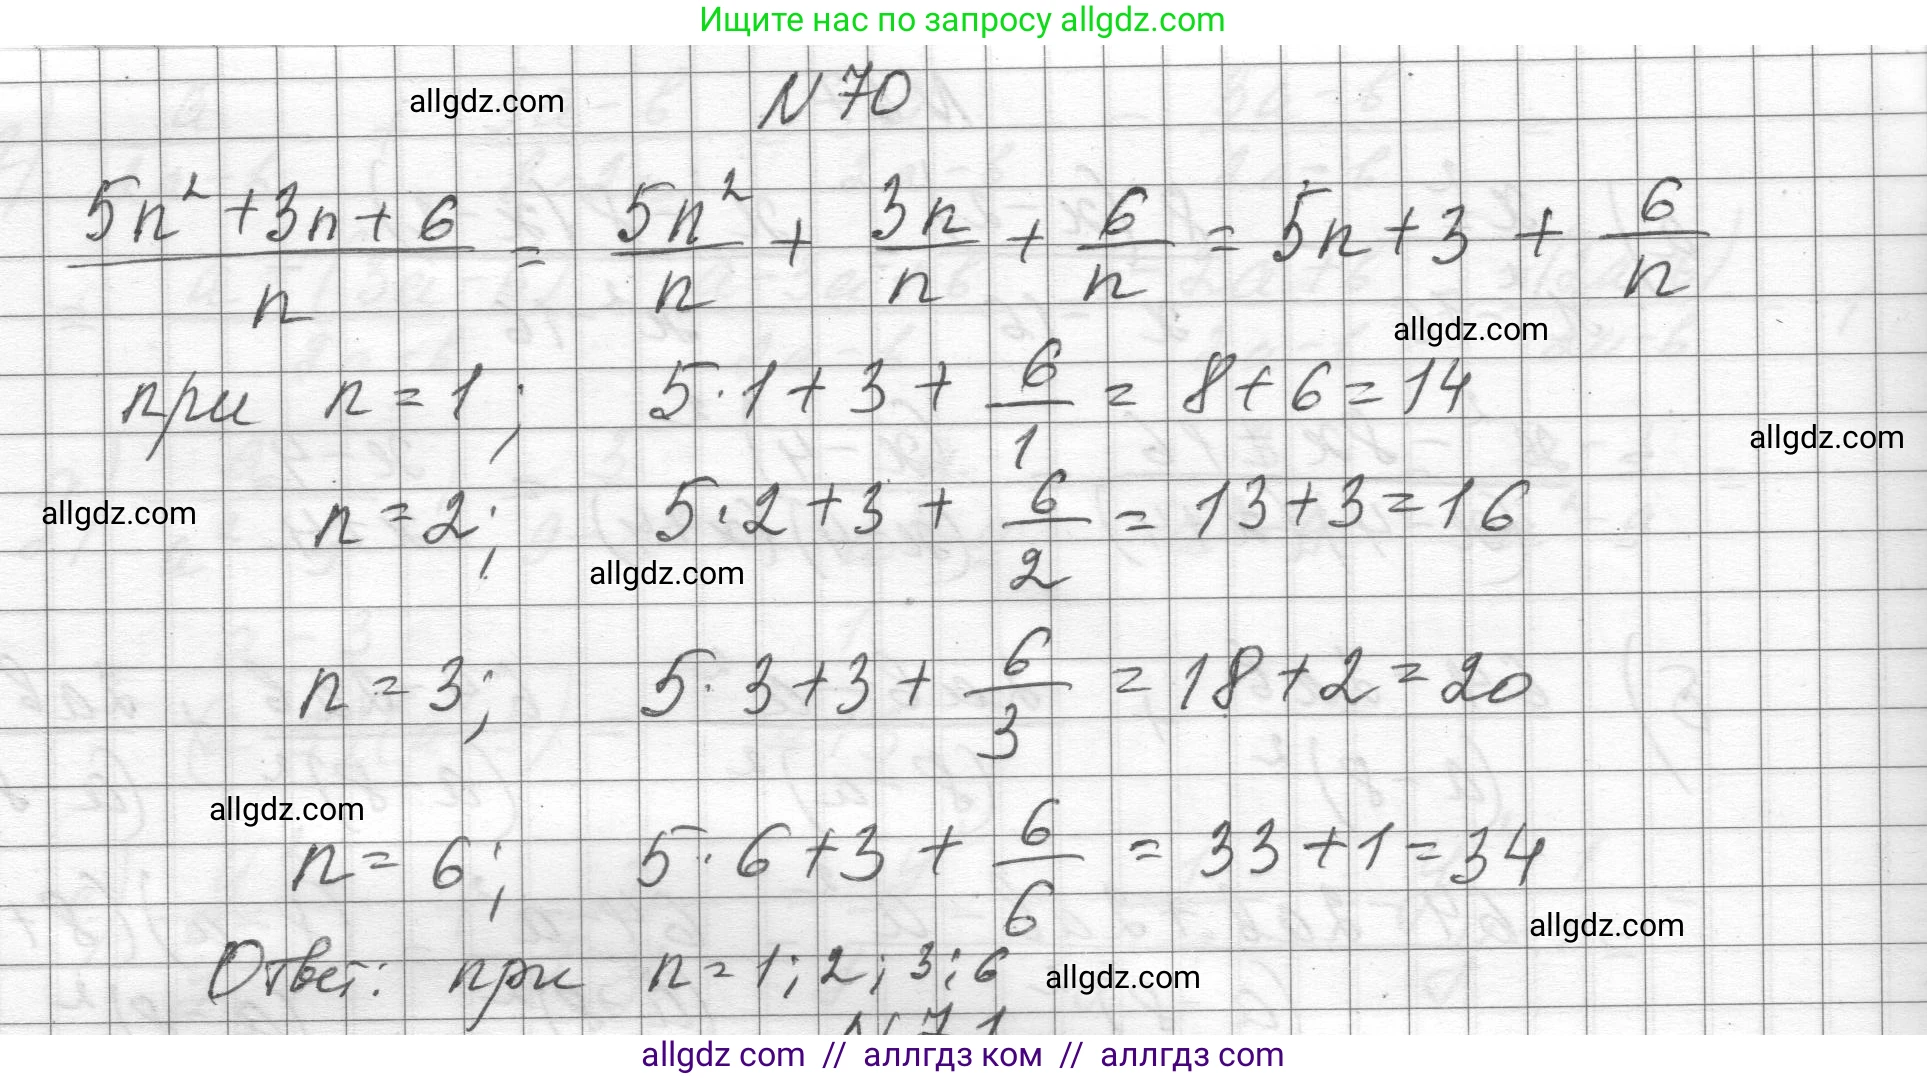 Ищите нас по запросу allgdz.com
allgdz.com
N 70
\frac{5n^2+3n+6}{n} = \frac{5n^2}{n} + \frac{3n}{n} + \frac{6}{n} = 5n+3+\frac{6}{n}
allgdz.com
при n=1; 5·1+3+\frac{6}{1} = 8+6=14
allgdz.com
allgdz.com
n=2; 5·2+3+\frac{6}{2} = 13+3=16
allgdz.com
n=3; 5·3+3+\frac{6}{3} = 18+2=20
allgdz.com
n=6; 5·6+3+\frac{6}{6} = 33+1=34
allgdz.com
Ответ: при n=1; 2; 3; 6
allgdz.com
N 71
allgdz com // аллгдз ком // аллгдз com